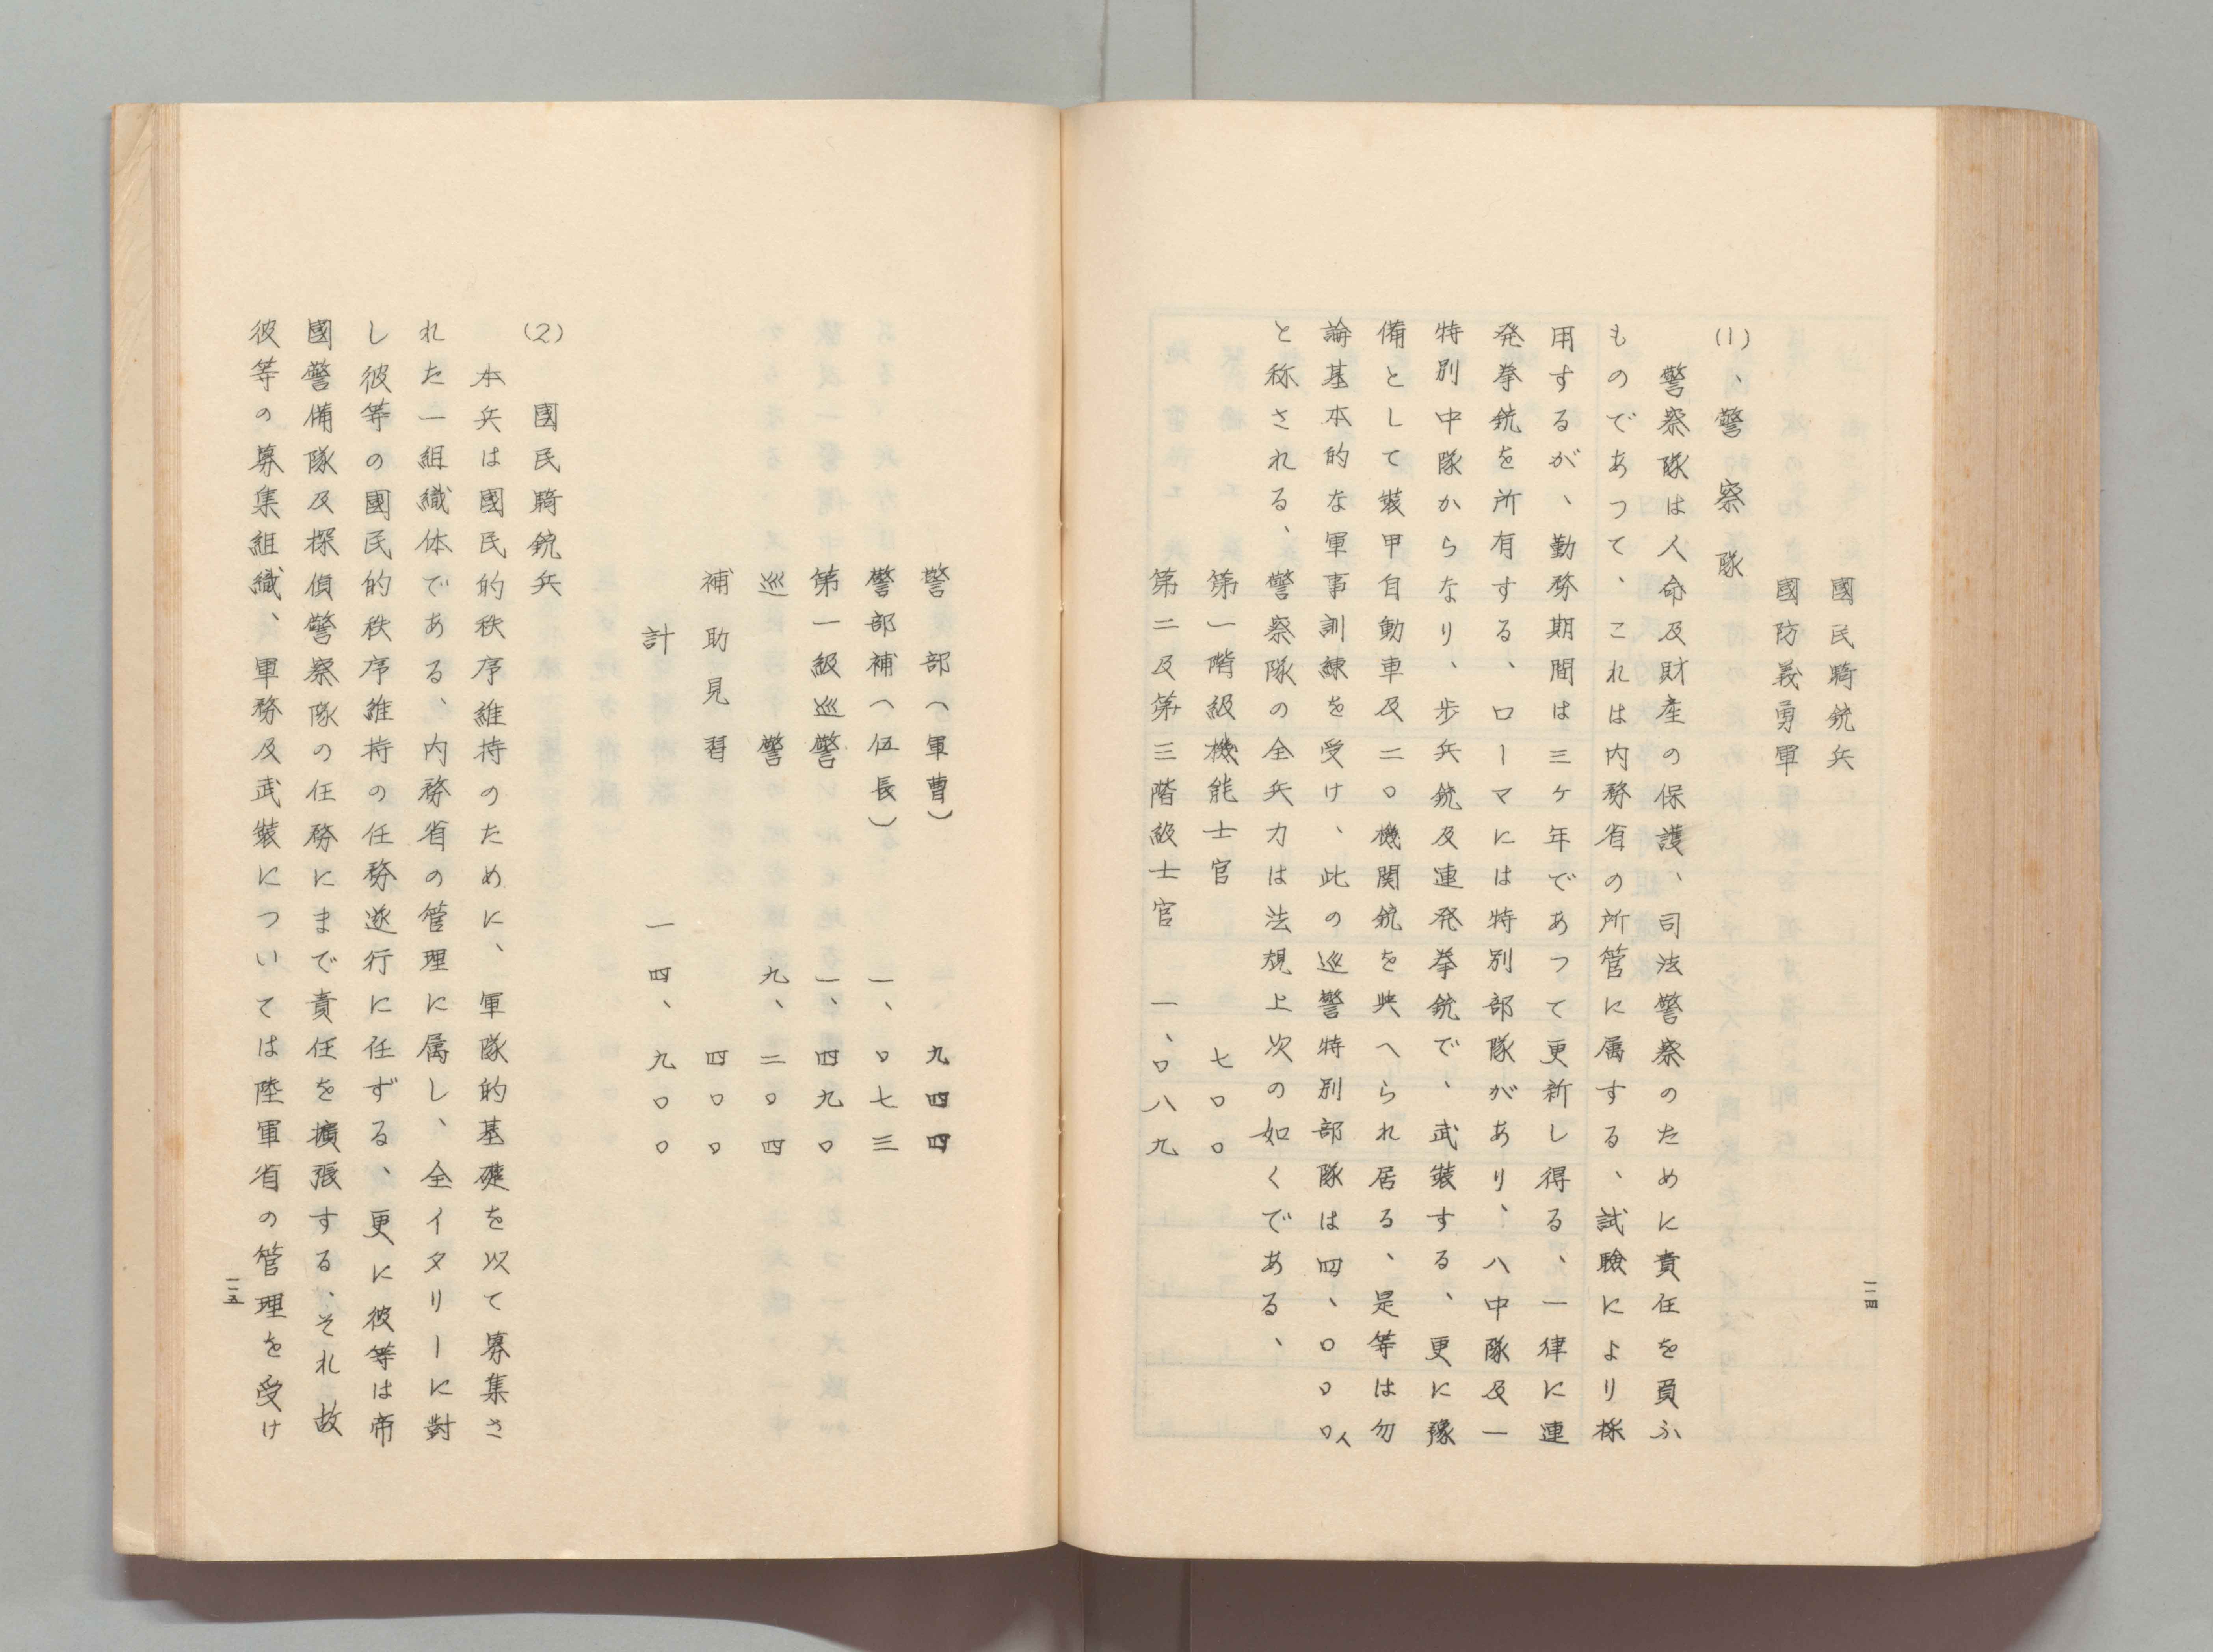 國民騎銃兵
國防義勇軍
(1)、警察隊
警察隊は人命及財産の保護、司法警察のために責任を負ふ
ものであつて、これは内務省の所管に属する、試験により採
用するが、勤務期間は三ケ年であつて更新し得る、一律に連
発拳銃を所有する、ローマには特別部隊があり、八中隊及一
特別中隊からなり、歩兵銃及連発拳銃で、武装する、更に豫
備として装甲自動車及二〇機関銃を與へられ居る、是等は勿
論基本的な軍事訓練を受け、此の巡警特別部隊は四、〇〇〇人
と称される、警察隊の全兵力は法規上次の如くである、
第一階級機能士官 七〇〇
第二及第三階級士官 一、〇八九
一一四
警部(軍曹) 一、九四四
警部補(伍長) 一、〇七三
第一級巡警 一、四九〇
巡警 九、二〇四
補助見習 四〇〇
計 一四、九〇〇
(2) 國民騎銃兵
本兵は國民的秩序維持のために、軍隊的基礎を以て募集さ
れた一組織体である、内務省の管理に属し、全イタリーに對
し彼等の國民的秩序維持の任務遂行に任ずる、更に彼等は帝
國警備隊及探偵警察隊の任務にまで責任を擴張する、それ故
彼等の募集組織、軍務及武装については陸軍省の管理を受け
一一五